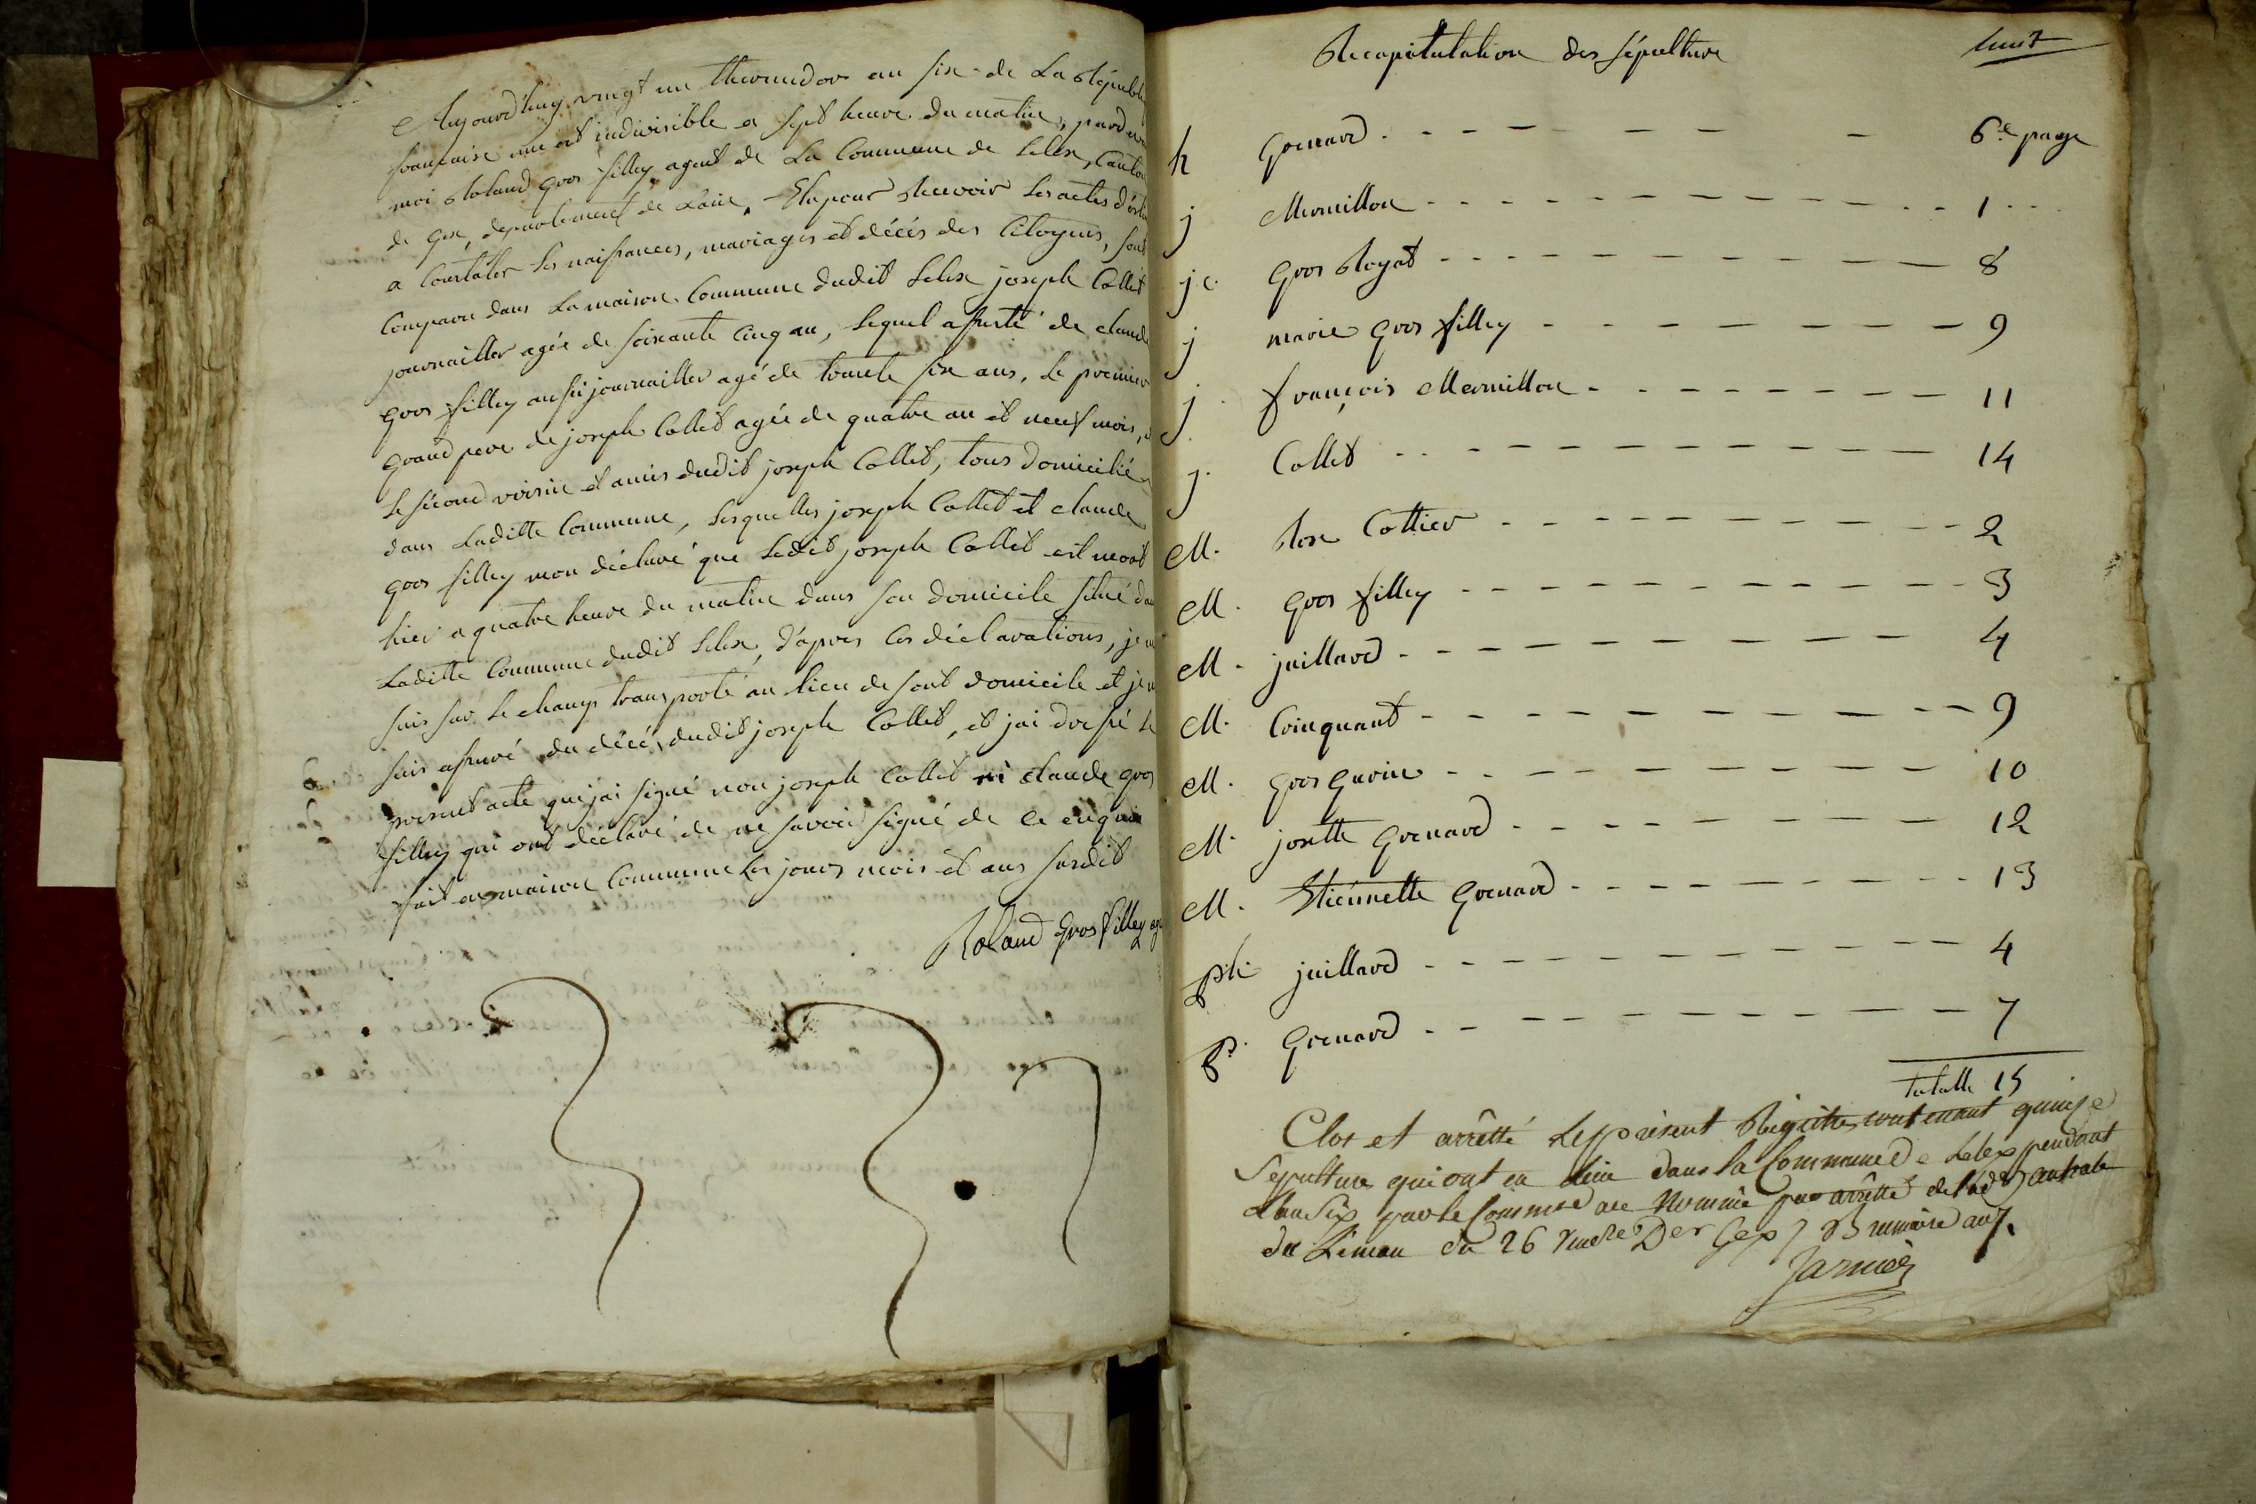 Aujourd'huy vingt un thermidor an six de La Républi
francaise une et indivisible a sept heure du matin, pardevan
moi Roland gros filley agent de La Commune de Lelex, Canton
de gex, departement de L'ain, Elu pour Recevoir Les actes d'é
a Constater les naissances, mariages et décès des Citoyens, sont
Comparu dans La maison Commune dudit Lelex joseph Collet
journailler agée de soixante cinq an, Lequel assisté de claude
gros filley aussi journailler agé de trante six ans, Le premier
grand pere de joseph Collet agée de quatre an et neuf mois,
Le sécond voisin et amis dudit joseph Collet, tous domicilié
dans Laditte Commune, Lesquelles joseph Collet et claude
gros filley mon déclaré que Ledit joseph Collet est mort
hier a quatre heure du matin dans son domicile situé da
Laditte Commune dudit Lelex, d'apres Ces déclarations, je m
suis sur Le champ transporté au Lieu de sont domicile et je m
suis assuré du décés dudit joseph Collet, et jai dressé Le
present acte que jai signé non joseph Collet ni claude gros
filley qui ont déclaré de ne savoir signé de ce enquis
fait en maison Commune Les jours mois et ans susdit
Roland Gros filley ag
Recapitulation des sépulture
huit
h Grenard 6.e page
j Mermillon 1
j c. gros Royat 8
j marie gros filley 9
j françois Mermillon 11
j. Collet 14
M. Rose Cottier 2
M. gros filley 3
M. juillard 4
M. Coinquant 9
M. gros gurin 10
M. josette grenard 12
M. Etiénnette grenard 13
ph. juillard 4
p. grenard 7
totalle 15
Clos et arrêtté Le présent Régistre contenant quinze
Sepulture qui ont eu Lieu dans la Commune de Lelex pendant
L'an Six par le Commre nommé par arrêtté de l'ad. centrale
du Léman du 26 Vendre Der Gex 7 Brumaire an 7.
Jarnier